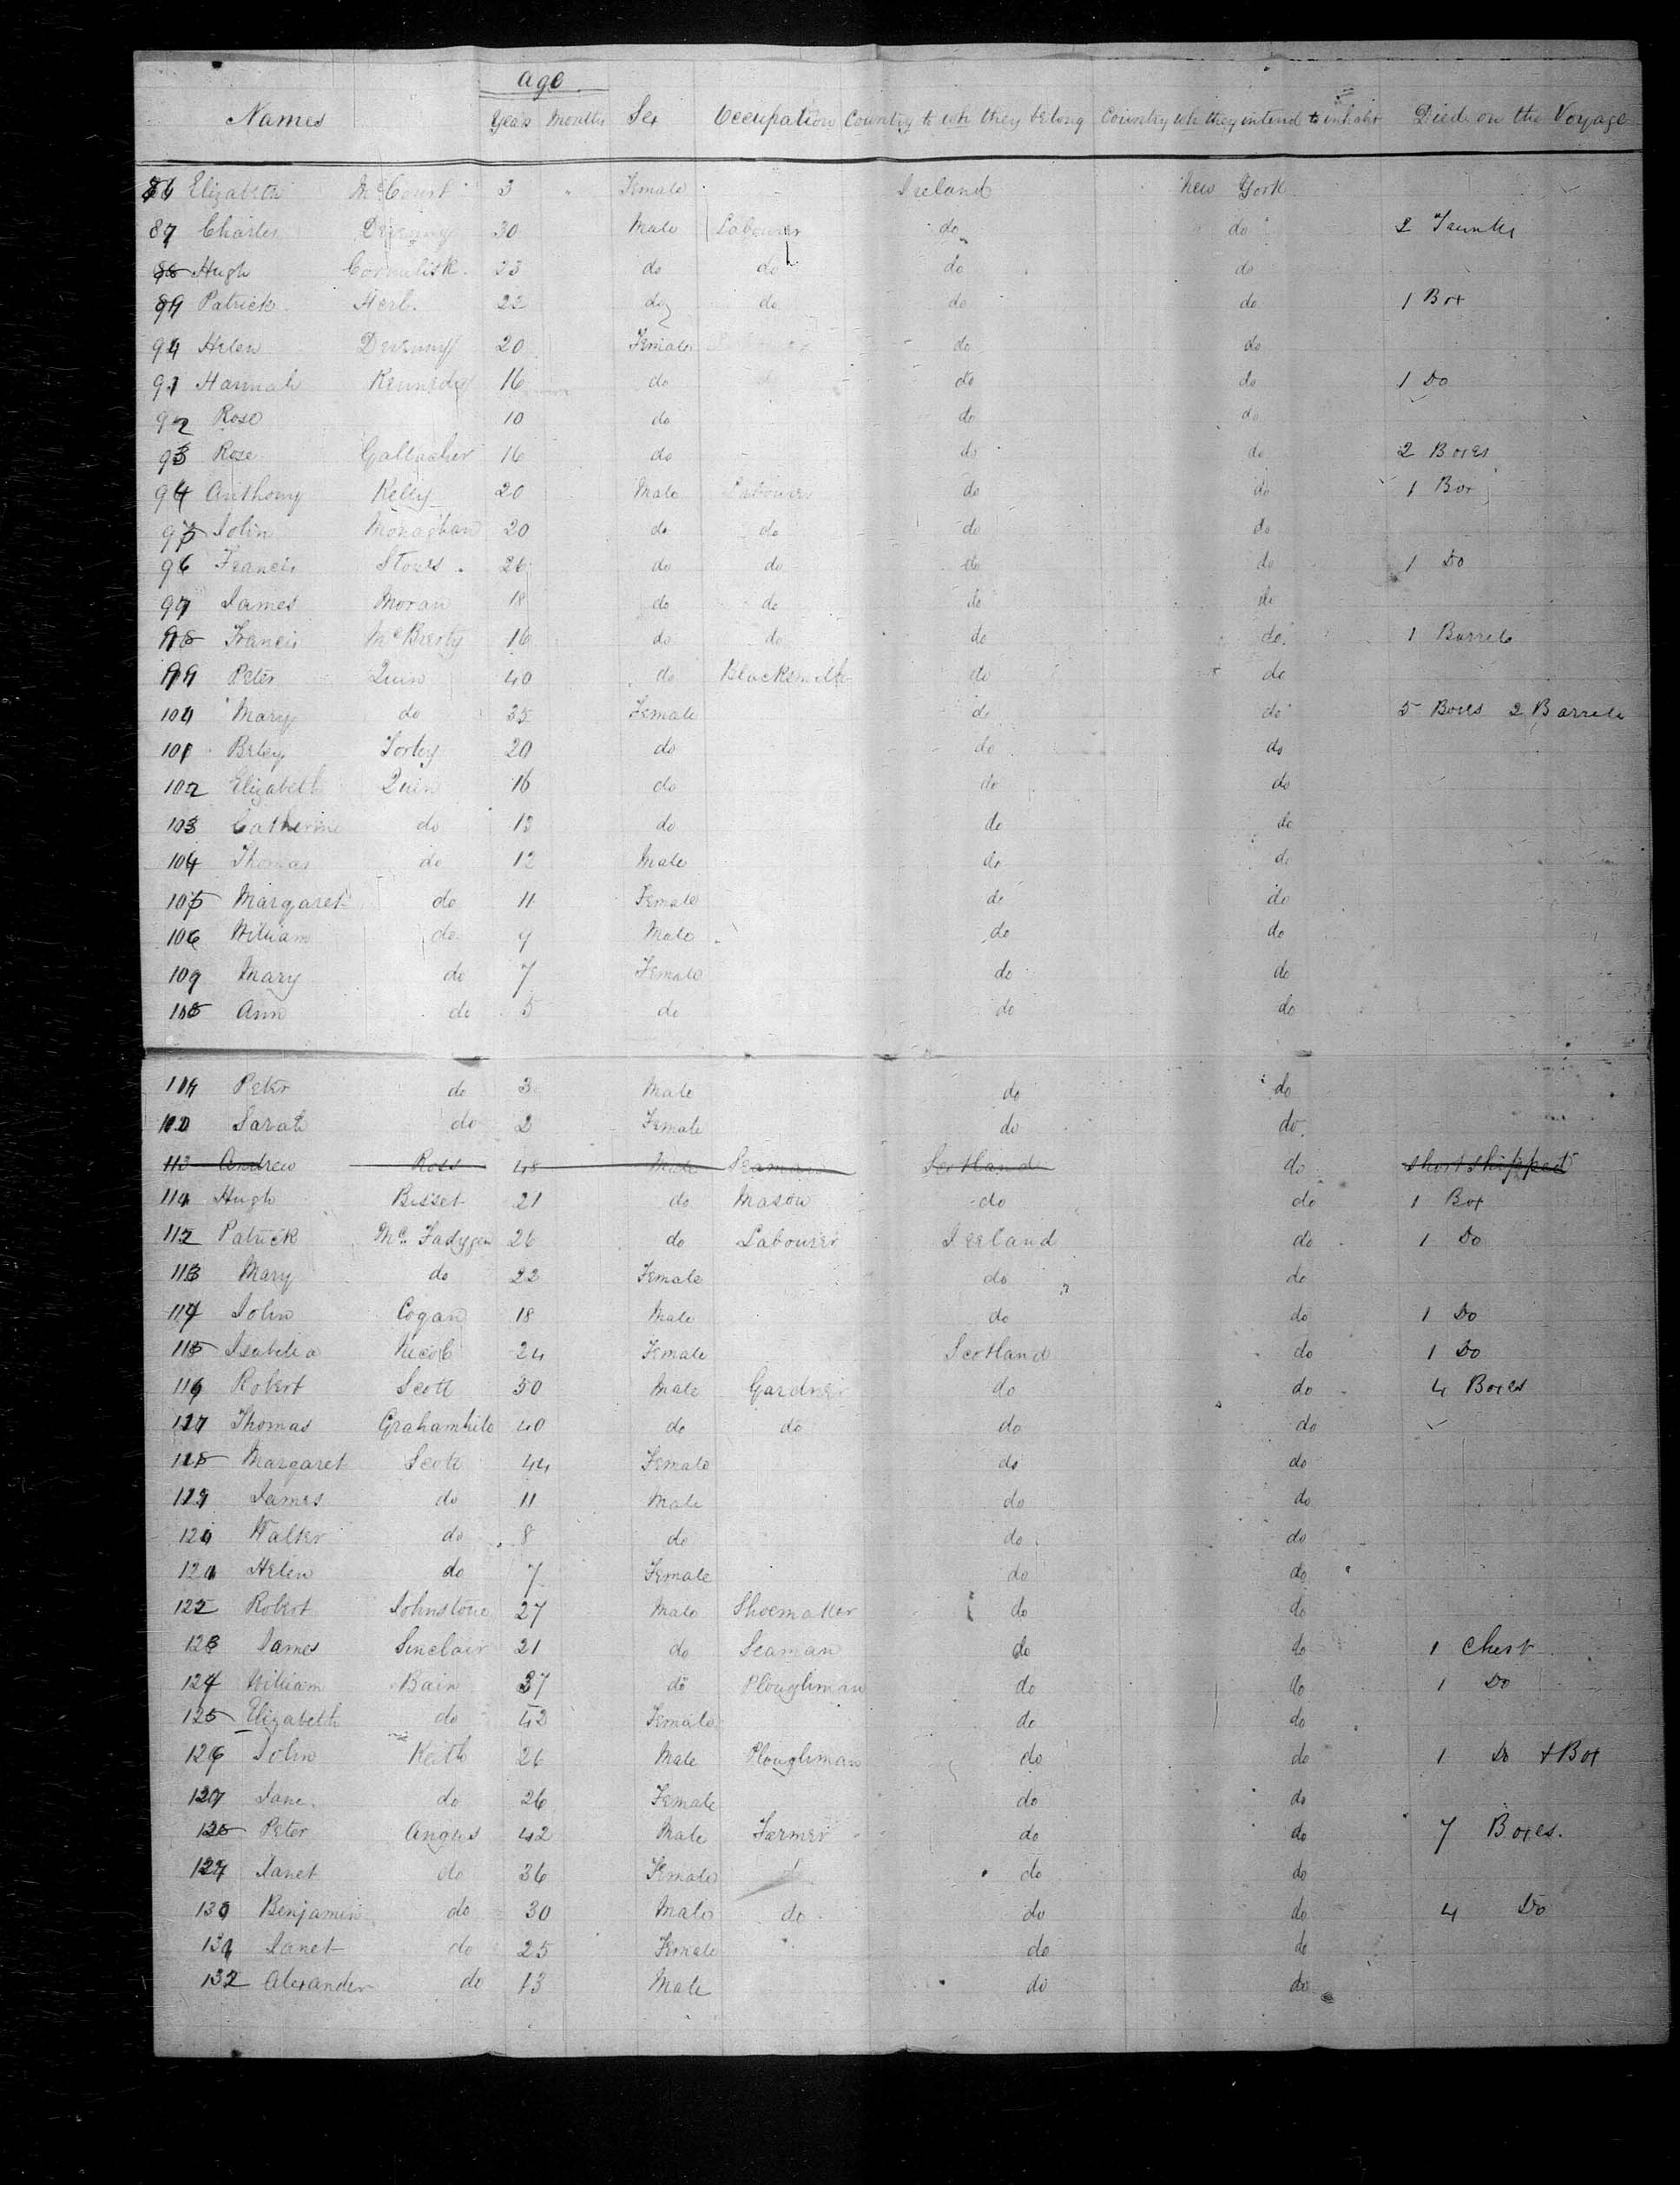 age
Names Years Months Sex Occupation Country to wh they belong Country wh they intend to inhabit Died on the Voyage
86 Elizabeth McCourt 3 " Female Ireland New York
87 Charles 30 Male Labourer do do 2 Trunks
88 Hugh 23 do do do do
89 Patrick 22 do do do do 1 Box
90 Helen 20 Female do do
91 Hannah Kennedy 16 do do do 1 Do
92 Rose 10 do do do
93 Rose Gallacher 16 do do do 2 Boxes
94 Anthony Kelly 20 Male Labourer do do 1 Box
95 John Monaghan 20 do do do do
96 Francis 26 do do do do 1 Do
97 James Moran 18 do do do do
98 Francis 16 do do do do 1 Barrel
99 Peter Quin 40 do Blacksmith do do
100 Mary do 35 Female do do 5 Boxes 2 Barrels
101 20 do do do
102 Elizabeth Quin 16 do do do
103 Catherine do 13 do do do
104 Thomas do 12 Male do do
105 Margaret do 11 Female do do
106 William do 9 Male do do
107 Mary do 7 Female do do
108 Ann do 5 do do do
109 Peter do 3 Male do do
110 Sarah do 2 Female do do
113 Andrew Ross 48 Male Seaman Scotland do short shipped
111 Hugh Bisset 21 do Mason do do 1 Box
112 Patrick Mc Fadygen 26 do Labourer Ireland do 1 Do
113 Mary do 22 Female do do
114 John Cogan 18 Male do do 1 Do
115 Isabella Nicol 24 Female Scotland do 1 Do
116 Robert Scott 50 Male Gardner do do 4 Boxes
117 Thomas 40 do do do do
118 Margaret Scott 44 Female do do
119 James do 11 Male do do
120 Walter do 8 do do do
121 Helen do 7 Female do do
122 Robert Johnstone 27 Male Shoemaker do do
123 James Sinclair 21 do Seaman do do 1 Chest
124 William Bain 37 do Ploughman do do 1 Do
125 Elizabeth do 42 Female do do
126 John Keith 26 Male Ploughman do do 1 Do + Box
127 Jane do 26 Female do do
128 Peter Angus 42 Male Farmer do do 7 Boxes.
129 Janet do 36 Female do do
130 Benjamin do 30 Male do do do 4 Do
131 Janet do 25 Female do do
132 Alexander do 13 Male do do